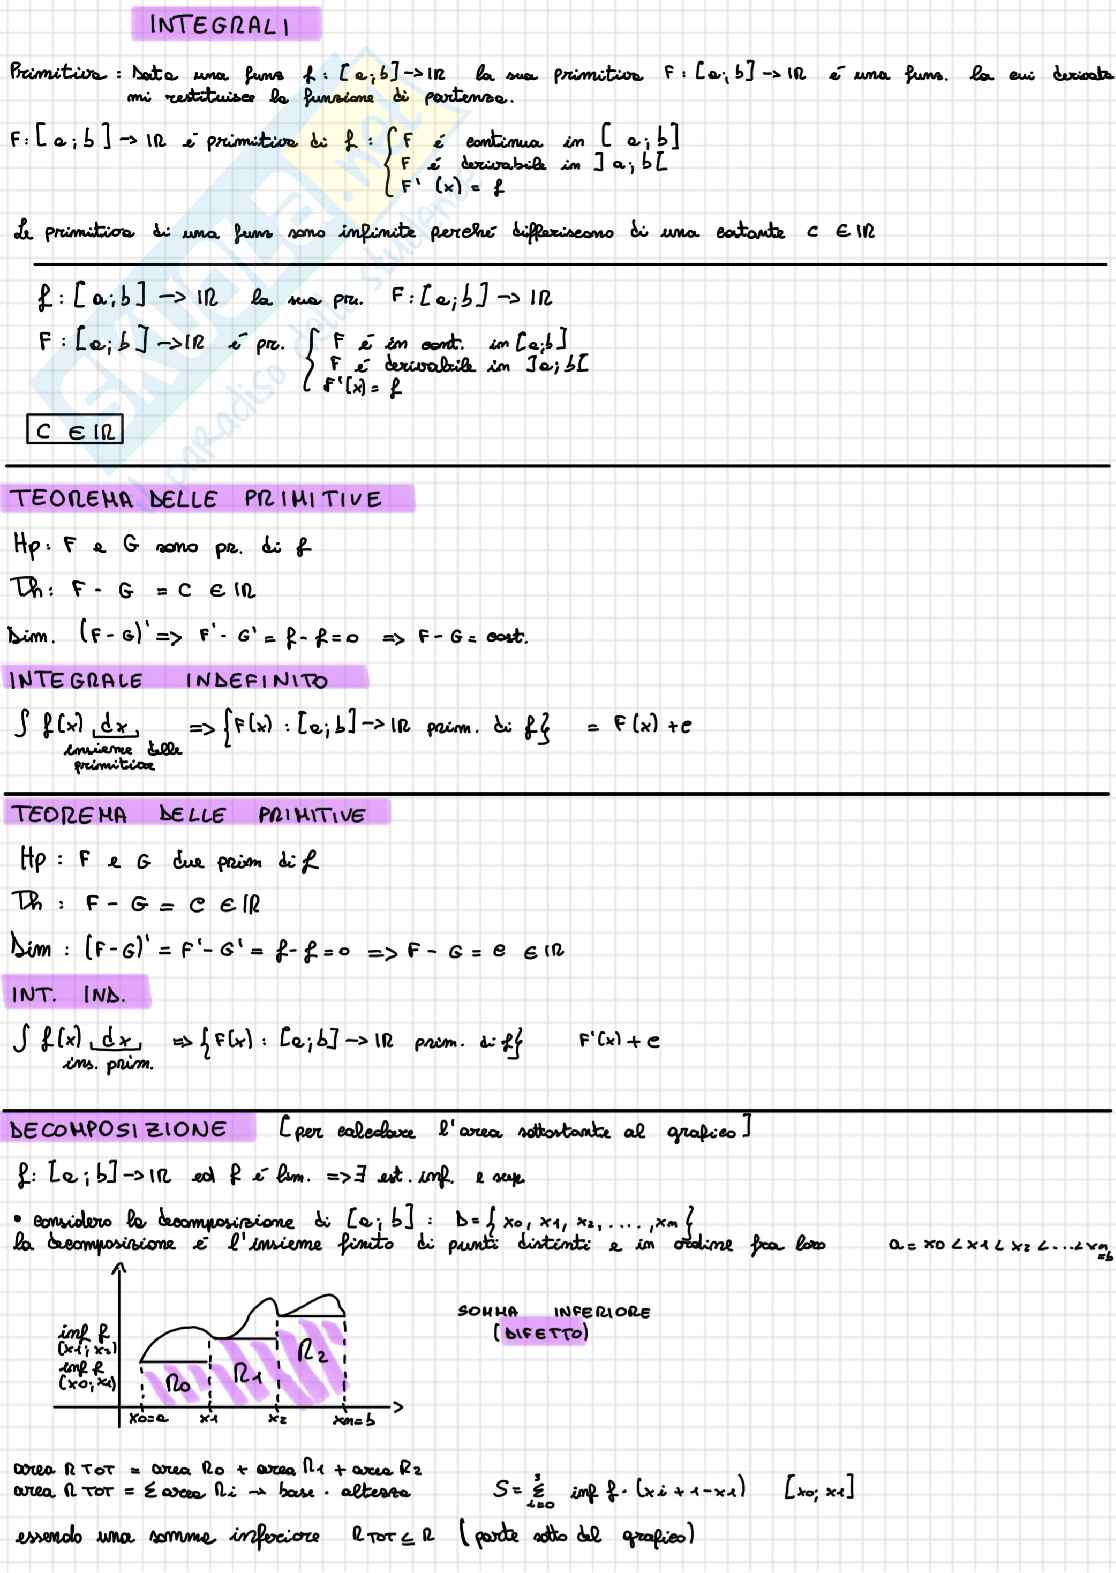 INTEGRALI
Primitiva : Data una funz f : [a;b] -> IR la sua primitiva F : [a;b] -> IR é una funz. la cui derivata
mi restituisce la funzione di partenza.
F : [a;b] -> IR é primitiva di f : { F é continua in [a;b]
F é derivabile in ]a;b[
F'(x) = f
Le primitive di una funz sono infinite perché differiscono di una costante C ∈ IR
f : [a;b] -> IR la sua pri. F : [a;b] -> IR
F : [a;b] -> IR é pr. { F é in cont. in [a;b]
F é derivabile in ]a;b[
F'(x) = f
C ∈ IR
TEOREMA DELLE PRIMITIVE
Hp: F e G sono pr. di f
Th: F - G = C ∈ IR
Dim. (F-G)' => F' - G' = f - f = 0 => F - G = cost.
INTEGRALE INDEFINITO
∫ f(x) dx => {F(x) : [a;b] -> IR prim. di f} = F(x) + c
insieme delle
primitive
TEOREMA DELLE PRIMITIVE
Hp : F e G due prim di f
Th : F - G = C ∈ IR
Dim : (F-G)' = F' - G' = f - f = 0 => F - G = c ∈ IR
INT. IND.
∫ f(x) dx => {F(x) : [a;b] -> IR prim. di f} F'(x) + c
ins. prim.
DECOMPOSIZIONE [per calcolare l'area sottostante al grafico]
f : [a;b] -> IR ed f é lim. => ∃ est. inf. e sup
• considero la decomposizione di [a;b] : D = { x0, x1, x2, ...., xn }
la decomposizione é l'insieme finito di punti distinti e in ordine fra loro a = x0 < x1 < x2 < ... < xn
=b
SOMMA INFERIORE
(DIFETTO)
inf f
(x1; x2)
inf f
(x0; x1)
R0 R1 R2
x0=a x1 x2 xn=b
area R TOT = area R0 + area R1 + area R2
area R TOT = Σ area Ri -> base · altezza S = Σ inf f · (xi + 1 - x1) [x0; x1]
3
i=0
essendo una somma inferiore R TOT ≤ R (parte sotto del grafico)
SKUOLA.net
il paradiso dello studente